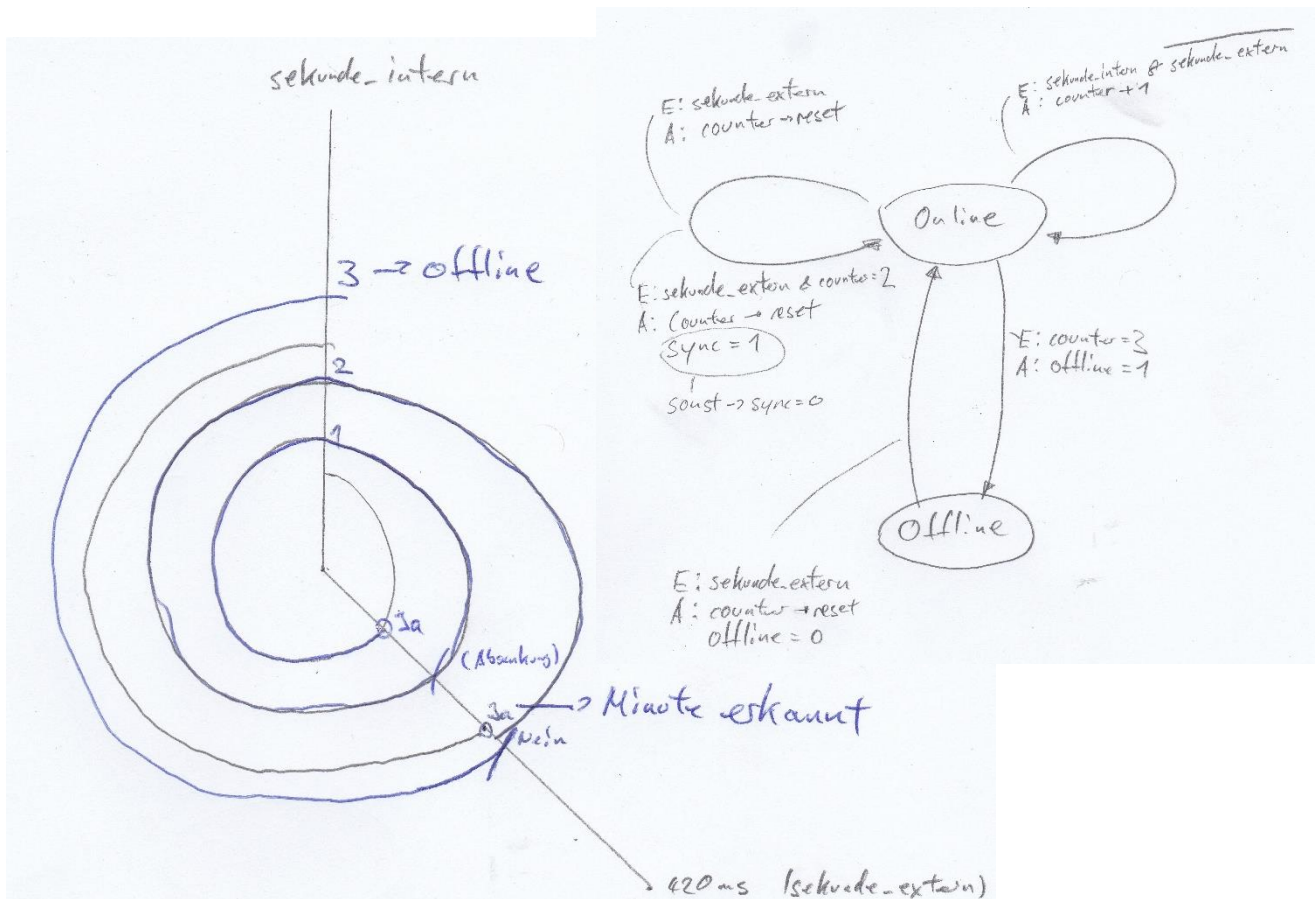 sekunde_intern
3 → offline
2
1
Ja
(Absenkung)
Ja → Minute erkannt
Nein
420ms (sekunde_extern)
E: sekunde_extern
A: counter → reset
E: sekunde_intern & sekunde_extern
A: counter + 1
Online
E: sekunde_extern & counter = 2
A: Counter → reset
sync = 1
sonst → sync = 0
E: counter = 3
A: offline = 1
Offline
E: sekunde_extern
A: counter → reset
offline = 0